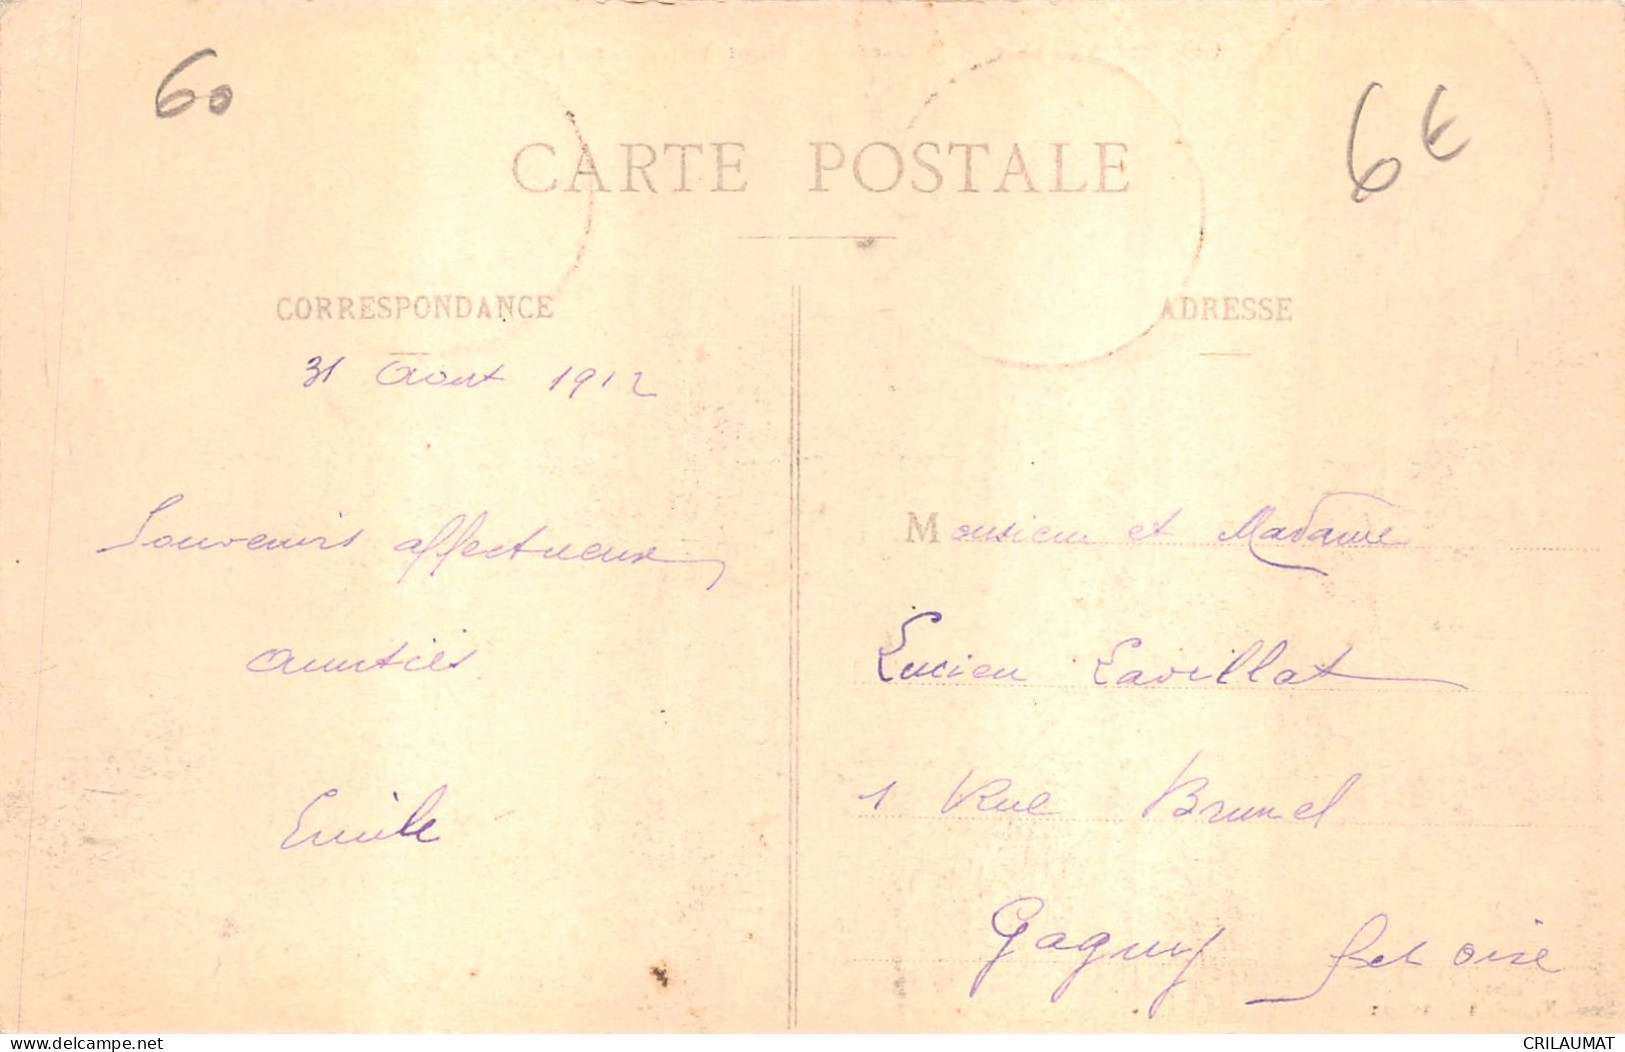 60
6€
CARTE POSTALE
CORRESPONDANCE
31 Aout 1912
Souvenirs affectueux,
amitiés
Emile
ADRESSE
Monsieur et Madame
Lucien Lavillat
1 Rue Brunel
Gagny S et oise
www.delcampe.net
CRILAUMAT